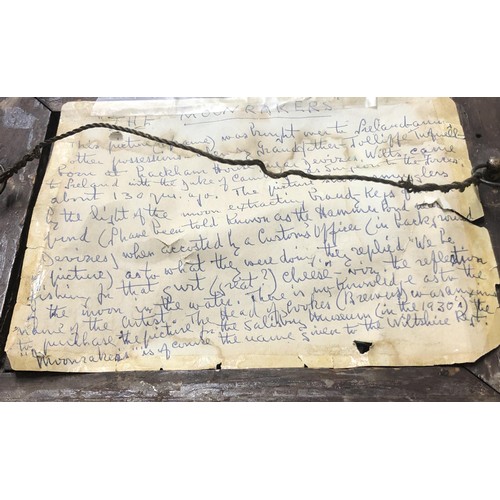 THE MOONRAKERS.
This picture (among) was brought over to Ireland by
other possessions Grandfather
born at Rackham House, Devizes, Wilts, came
to Ireland with the Duke of Cambridge as Surgeon to the Forces
about 130 yrs. ago. The picture shows smugglers
by the light of the moon extracting Brandy Kegs from
pond (I have been told known as the Hammer Pond near
Devizes) when accosted by a Customs Officer (in background
picture) as to what they were doing, they replied "We be
fishing for that girt (great?) cheese" viz: the reflection
of the moon in the water. There is no knowledge as to the
name of the artist. The head of Stookes (Brewery) was anxious
to purchase the picture for the Salisbury Museum (in the 1930s) The
"Moonrakers" is of course the name given to the Wiltshire Regt.